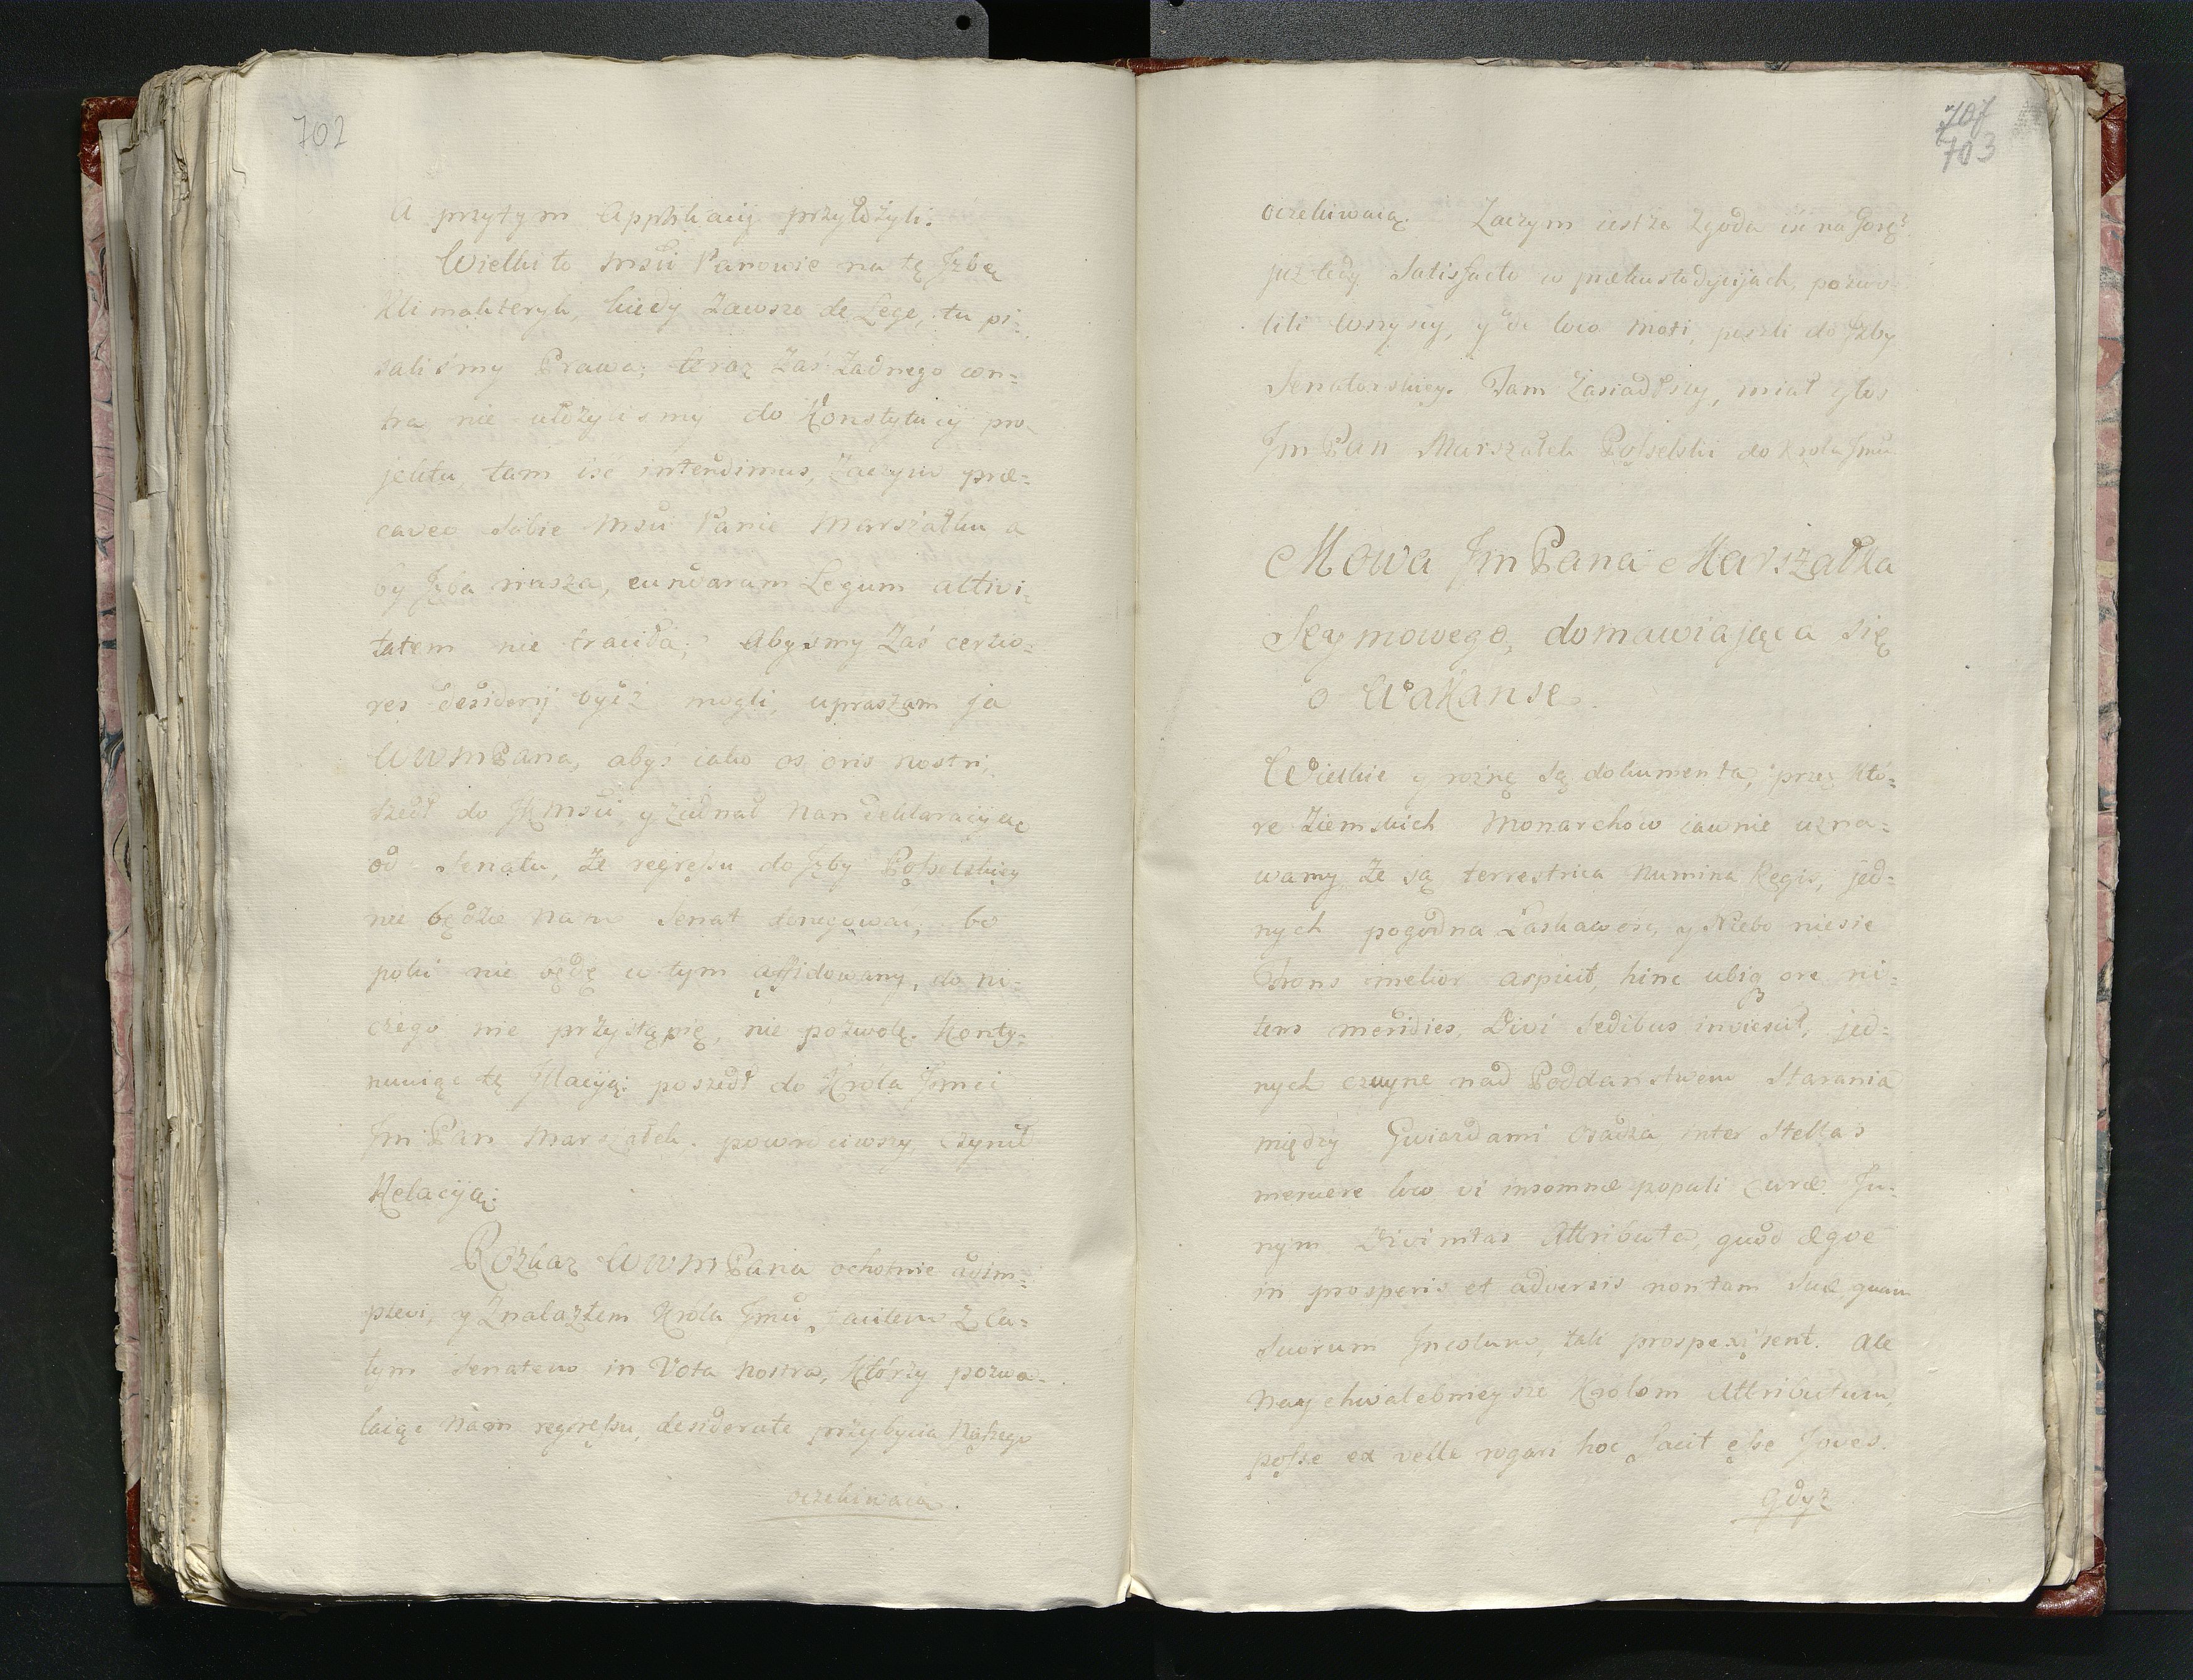 702
A przytym Applikacij przyłożyli.
Wielki to Msci Panowie na tę Jzbę
Klimakteryk, kiedy zawsze de Lege, tu pi=
saliśmy Prawa; teraz zaś żadnego con=
tra nie ułożylismy do Konstytucij pro
jektu, tam iść intendimus, Zaczym præ=
caveo sobie Msci Panie Marszałku a
by Jzba nasza, eundarum Legum activi=
tatem nie traciła; abysmy zaś certio=
res desiderij bydź mogli, upraszam ja
WWMPana, abyś iako os oris nostri,
szedł do JKMsci, y ziednał nam deklaracyą
od Senatu, że regressu do Jzby Poselskiey
nie będzie nam Senat denegował, bo
poki nie będę w tym assidowany, do ni=
czego nie przystąpię, nie pozwolę. Konty=
nuuiąc tę Jllacyą: poszedł do Króla Jmci
Jm Pan Marszałek. powrociwszy, czynił
Relacyią:
Rozkaz WWMPana ochotnie adim=
plevi, y Znalazłem Krola Jmci facilem z ca=
łym Senatem in Vota nostra, którzy pozwa=
laiąc nam regressu, desiderate przybycia Naszego
oczekiwaią.
707
703
oczekiwaią. Zaczym iest że Zgoda iść na Gorę?
już tedy Satisfacto w prækustodycijach, pozwo
lili wszyscy, y de loco moti, poszli do Jzby
Senatorskiey. Tam zasiadłszy, miał głos
Jm Pan Marszałek Poselski do Krola Jmci
Mowa Jm Pana Marszałka
Seymowego, domawiająca się
o Wakanse.
Wielkie y rożne są dokumenta, przez któ=
re Ziemskich Monarchow iawnie uzna=
wamy że są terrestria Numina Regis, jed=
nych pogodna Łaskawość, y Niebo niesie
Frons melior aspicit, hinc ubiq ore ni=
tens meridies, Divi sedibus inviescit, jed=
nych czuyne nad Poddaństwem Starania
między Gwiazdami osadza, inter Stellas
meruere loco vi insomnæ populi curæ. In=
nym Divinitas Attributa, quod æque
in prosperis et adversis non tam suæ quam
suorum Incolum, tali prospexissent. Ale
Naychwalebnieysze Królom Attributum,
posse ex velle rogari hoc facit esse Joves.
Gdyż